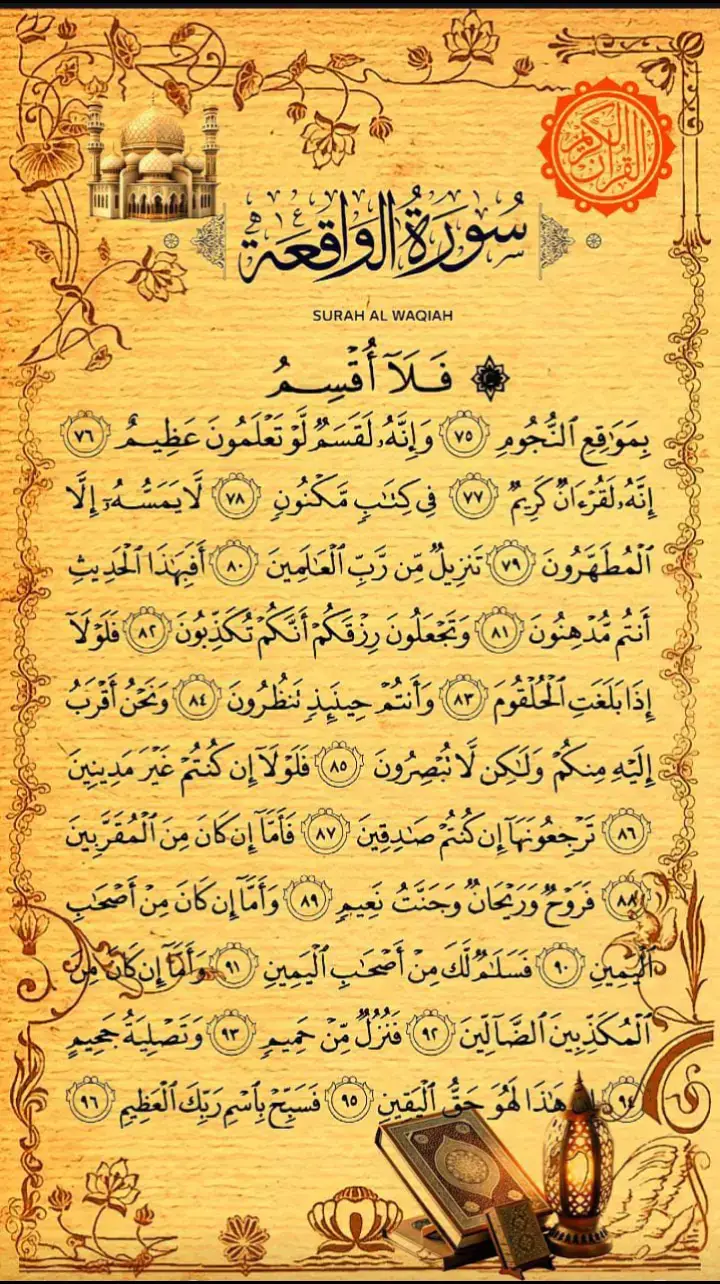 القرآن الكريم
سُورَةُ الوَاقِعَة
SURAH AL WAQIAH
۞ فَلَآ أُقْسِمُ
بِمَوَٰقِعِ ٱلنُّجُومِ ٧٥ وَإِنَّهُۥ لَقَسَمٌ لَّوْ تَعْلَمُونَ عَظِيمٌ ٧٦
إِنَّهُۥ لَقُرْءَانٌ كَرِيمٌ ٧٧ فِى كِتَٰبٍ مَّكْنُونٍ ٧٨ لَّا يَمَسُّهُۥٓ إِلَّا
ٱلْمُطَهَّرُونَ ٧٩ تَنزِيلٌ مِّن رَّبِّ ٱلْعَٰلَمِينَ ٨٠ أَفَبِهَٰذَا ٱلْحَدِيثِ
أَنتُم مُّدْهِنُونَ ٨١ وَتَجْعَلُونَ رِزْقَكُمْ أَنَّكُمْ تُكَذِّبُونَ ٨٢ فَلَوْلَآ
إِذَا بَلَغَتِ ٱلْحُلْقُومَ ٨٣ وَأَنتُمْ حِينَئِذٍ تَنظُرُونَ ٨٤ وَنَحْنُ أَقْرَبُ
إِلَيْهِ مِنكُمْ وَلَٰكِن لَّا تُبْصِرُونَ ٨٥ فَلَوْلَآ إِن كُنتُمْ غَيْرَ مَدِينِينَ
٨٦ تَرْجِعُونَهَآ إِن كُنتُمْ صَٰدِقِينَ ٨٧ فَأَمَّآ إِن كَانَ مِنَ ٱلْمُقَرَّبِينَ
٨٨ فَرَوْحٌ وَرَيْحَانٌ وَجَنَّتُ نَعِيمٍ ٨٩ وَأَمَّآ إِن كَانَ مِنْ أَصْحَٰبِ
ٱلْيَمِينِ ٩٠ فَسَلَٰمٌ لَّكَ مِنْ أَصْحَٰبِ ٱلْيَمِينِ ٩١ وَأَمَّآ إِن كَانَ مِنَ
ٱلْمُكَذِّبِينَ ٱلضَّآلِّينَ ٩٢ فَنُزُلٌ مِّنْ حَمِيمٍ ٩٣ وَتَصْلِيَةُ جَحِيمٍ
٩٤ إِنَّ هَٰذَا لَهُوَ حَقُّ ٱلْيَقِينِ ٩٥ فَسَبِّحْ بِٱسْمِ رَبِّكَ ٱلْعَظِيمِ ٩٦